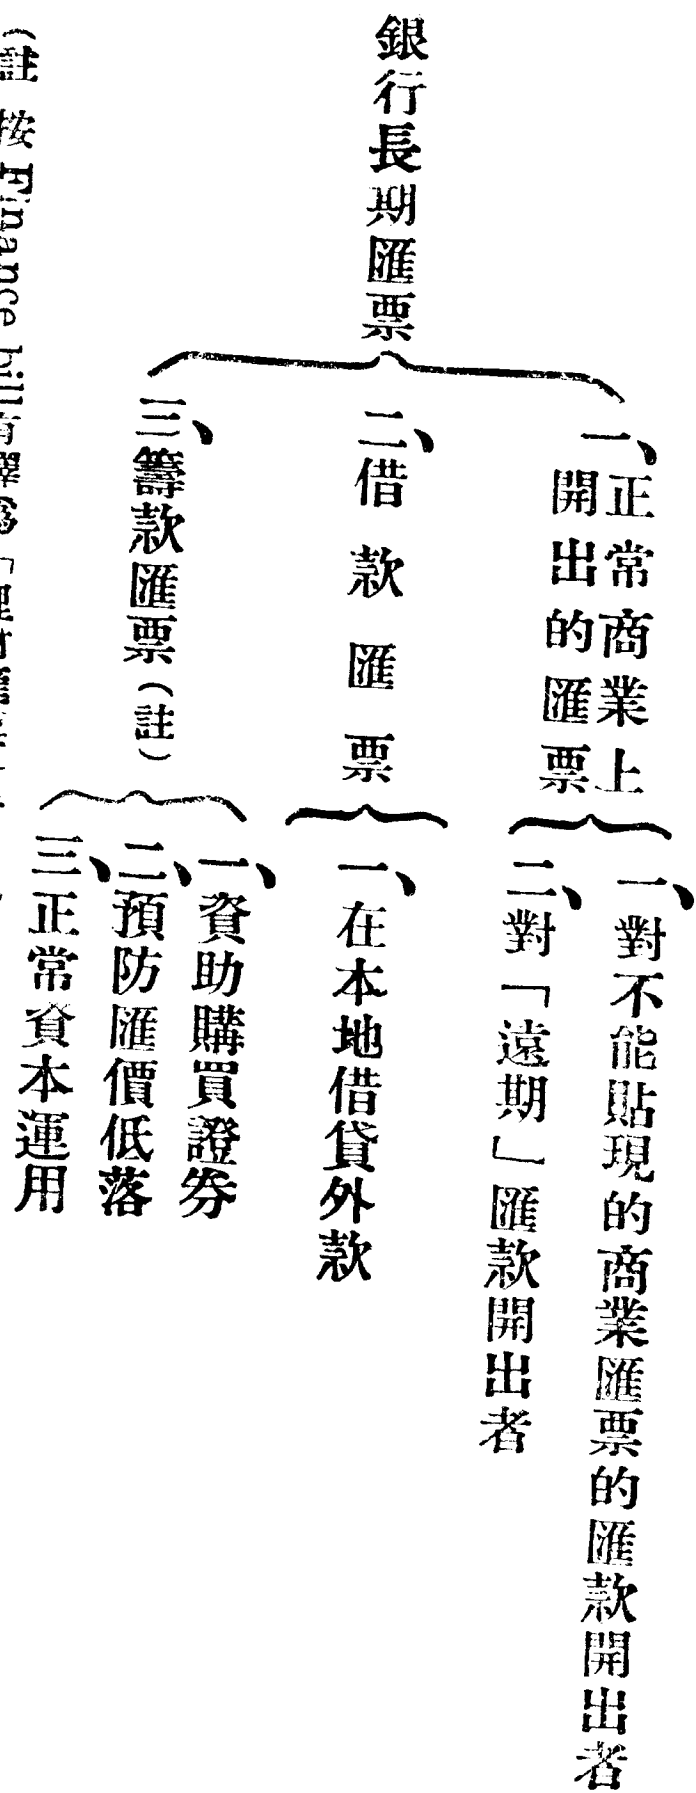 銀行長期匯票
一、正常商業上
開出的匯票
一、對不能貼現的商業匯票的匯款開出者
二、對「遠期」匯款開出者
二、借款匯票
一、在本地借貸外款
三、籌款匯票(註)
一、資助購買證券
二、預防匯價低落
三、正常資本運用
(註 按 Finance bill 有譯為「理財匯票